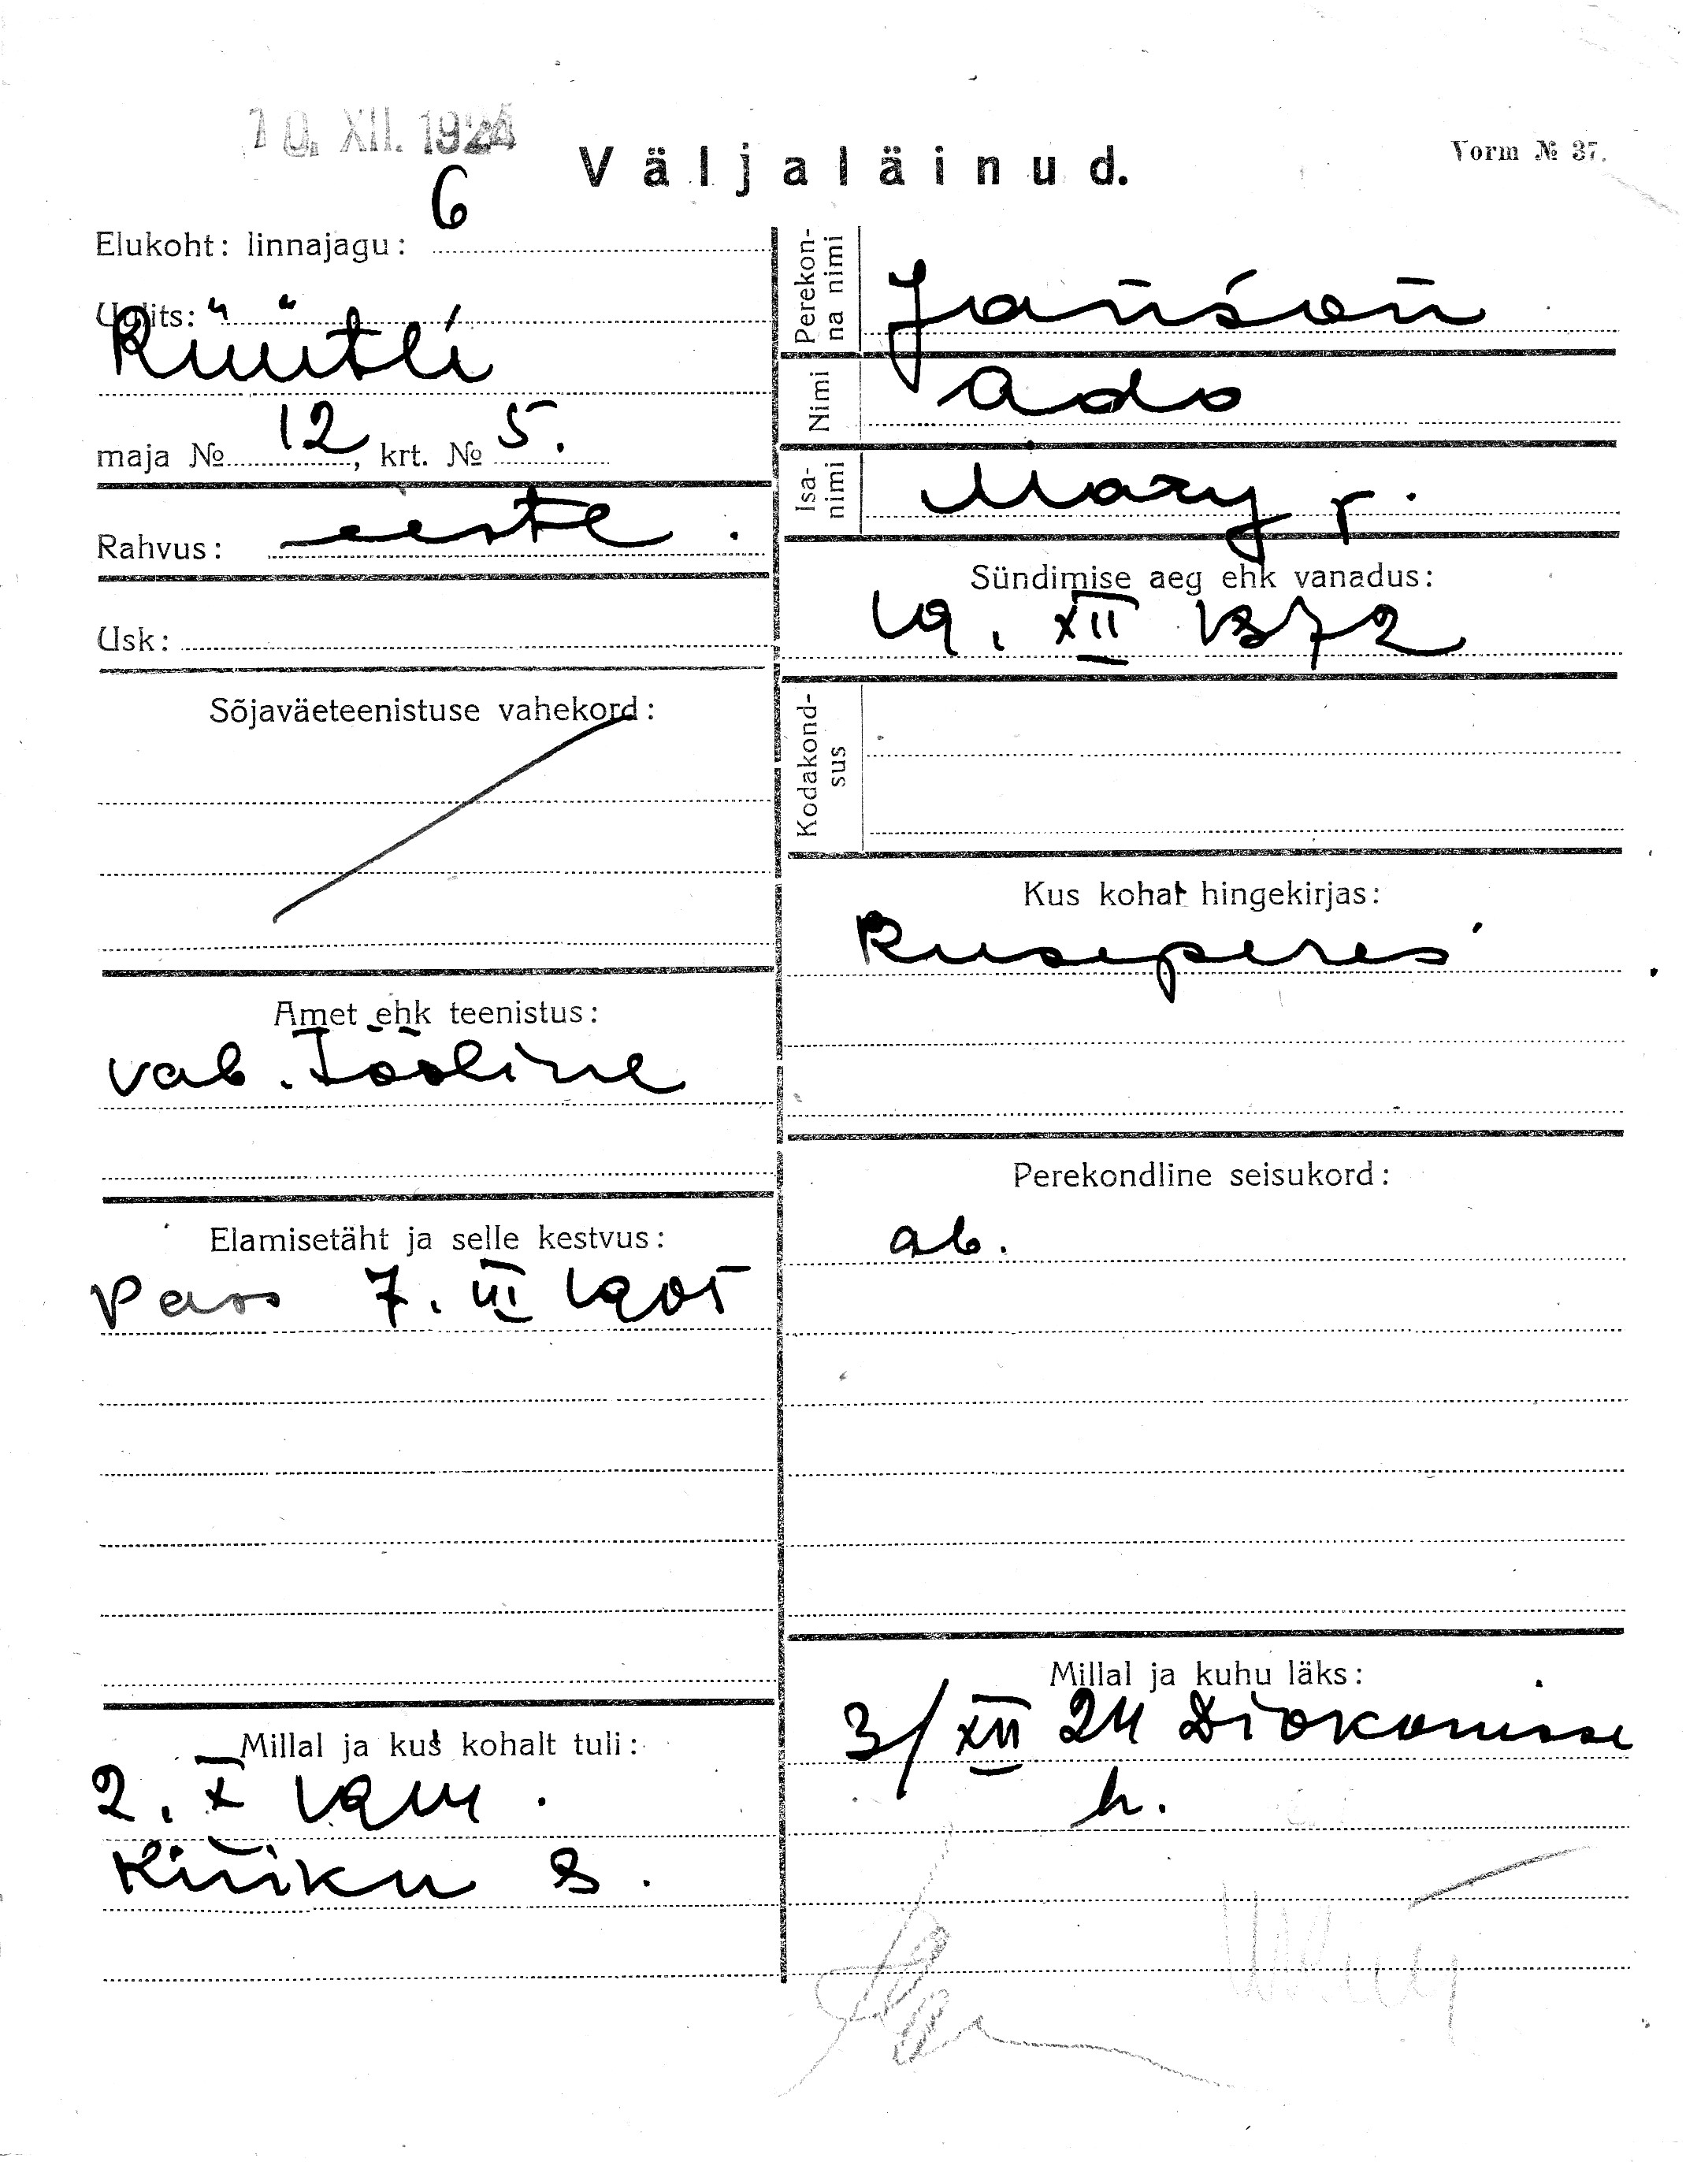 10. XII. 1924
Väljaläinud.
Vorm № 37.
Elukoht: linnajagu: 6
Uulits:
Rüütli
maja № 12, krt. № 5.
Rahvus: eeste.
Usk:
Sõjaväeteenistuse vahekord:
Amet ehk teenistus:
vab. Tööline
Elamisetäht ja selle kestvus:
Pass 7. III 1905
Millal ja kust kohalt tuli:
2. X 1924.
Küüku 8.
Perekonna nimi Janson
Nimi Ado
Isanimi Mary p.
Sündimise aeg ehk vanadus:
19. XII 1872
Kodakondsus
Kus kohat hingekirjas:
Kuseperes
Perekondline seisukord:
ab.
Millal ja kuhu läks:
3/XII 24 Diakonisse
h.